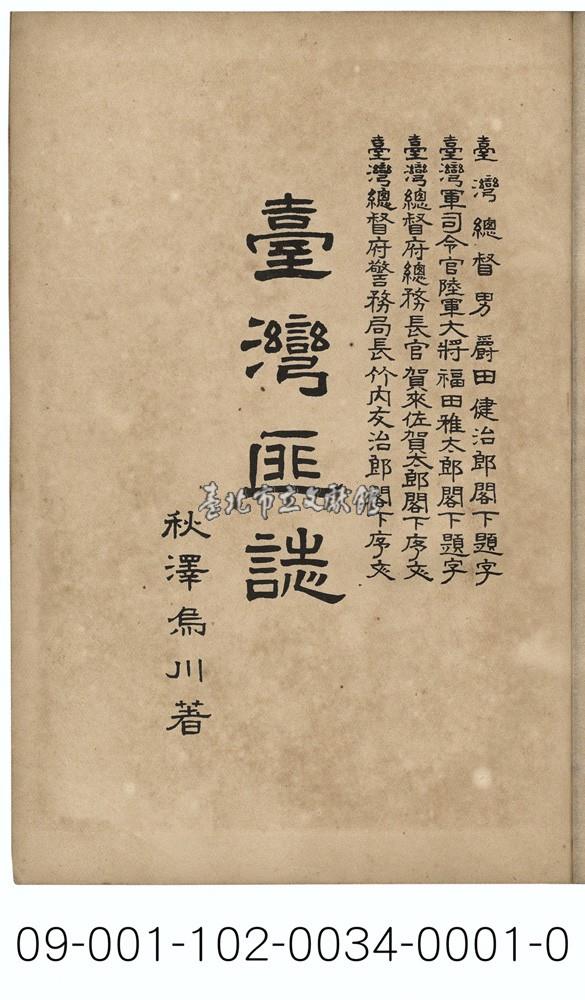 臺灣總督男爵田健治郎閣下題字
臺灣軍司令官陸軍大將福田雅太郎閣下題字
臺灣總督府總務長官賀來佐賀太郎閣下序文
臺灣總督府警務局長竹內友治郎閣下序文
臺灣匪誌
秋澤烏川著
臺北市立文獻館
09-001-102-0034-0001-0